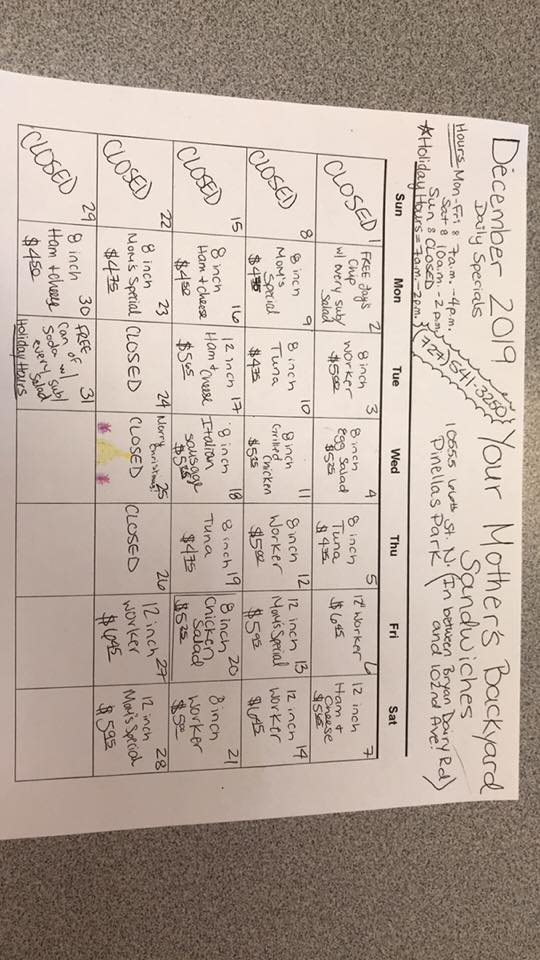 December 2019
Daily Specials
Hours: Mon-Fri: 7a.m.-4p.m.
Sat: 10a.m.-2p.m.
Sun: CLOSED
*Holiday Hours = 7a.m.-2p.m.
(727) 541-3250
Your Mother's Backyard
Sandwiches
St. N. In between Bryan Dairy Rd
Pinellas Park and 102nd Ave.)
Sun Mon Tue Wed Thu Fri Sat
1
CLOSED
2
FREE Jay's
Chip
w/ every sub/
Salad
3
8 inch
Worker
$5.00
4
8 inch
egg Salad
$5.25
5
8 inch
Tuna
$4.75
6
12" Worker
$6.45
7
12 inch
Ham +
Cheese
8
CLOSED
9
8 inch
Mom's
Special
10
8 inch
Tuna
$4.75
11
8 inch
Grilled
Chicken
$5.25
12
8 inch
Worker
$5.00
13
12 inch
Mom's Special
$5.95
14
12 inch
Worker
$6.45
15
CLOSED
16
8 inch
Ham + cheese
$4.50
17
12 inch
Ham + Cheese
18
8 inch
Italian
Sausage
19
8 inch
Tuna
$4.75
20
8 inch
Chicken
Salad
$5.25
21
8 inch
Worker
$5.00
22
CLOSED
23
8 inch
Mom's Special
$4.75
24
CLOSED
25
Merry
Christmas!
CLOSED
26
CLOSED
27
12 inch
Worker
$6.45
28
12 inch
Mom's Special
$5.95
29
CLOSED
30
8 inch
Ham + cheese
$4.50
31
FREE
Can of
Soda w/
every sub/
Salad
Holiday Hours